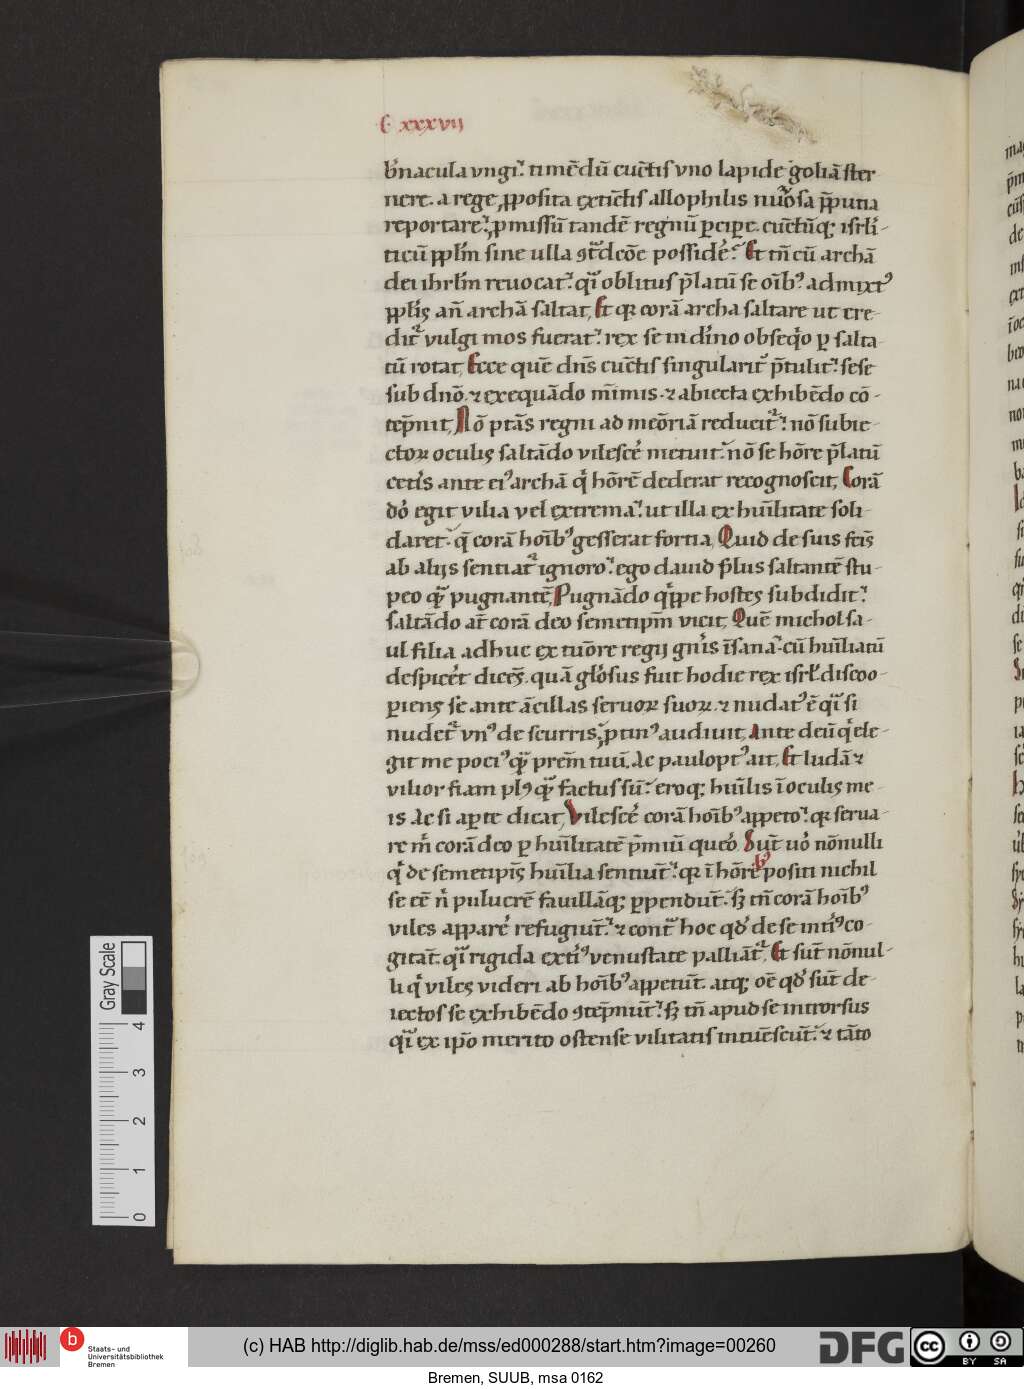 C xxxvij
b̄nacula vngi. timēdū cūctis vno lapide goliā ster
nere. a rege ꝓposita extīctis allophilis nūosa p̄putia
reportare. ꝓmissū tandē regnū ꝑciꝑe. cūctūqꝫ isrl'i-
ticū pplm̄ sine ulla ꝯtͣdc̄oe possidē. Et tn̄ cū archā
dei ihrlm̄ reuocat. qͣi oblitus p̄latū se oībꝰ admixtꝰ
pplis an̄ archā saltat, Et qꝛ corā archa saltare ut cre-
ditͬ vulgi mos fuerat. rex se in diīno obseqͦo ꝑ salta-
tū rotat, Ecce quē dn̄s cūctis singularitͬ p̄tulit. sese
sub dn̄o. ⁊ exequādo mīmis. ⁊ abiecta exhibēdo cō-
tēpnit, Nō ptās regni ad meōriā reducitͬ. nō subie-
ctoꝝ oculis saltādo vilescē metuit. nō se hōre p̄latū
cetis ante eiꝰ archā qͥ hōrē dederat recognoscit, Corā
dō egit vilia vel extrema. ut illa ex huīlitate soli-
daret. q̄ corā hoībꝰ gesserat fortia, Quid de suis fcīs
ab alijs sentiatͬ ignoro. ego dauid plus saltantē stu-
peo qͣ pugnantē, Pugnādo qͥppe hostes subdidit.
saltādo at̄ corā deo semetipm̄ vicit, Quē michol sa-
ul filia adhuc ex tuōre regij gn̄is īsana. cū huīliatū
despicēt dicēs. quā glōsus fuit hodie rex isrl' discoo-
ꝑiens se ante ācillas seruoꝝ suoꝝ. ⁊ nudatꝰ ē qͣi si
nudetͬ vnꝰ de scurris, ꝓtinꝰ audiuit, Ante deū qͥ ele-
git me pociꝰ qͣ prem̄ tuū. Ac paulo ptꝰ ait, Et ludā ⁊
vilior fiam plꝯ qͣ factus sū. eroqꝫ huīlis ī oculis me-
is Ac si aꝑte dicat, Vilescē corā hoībꝰ appeto. qꝛ serua-
re mͥ corā deo ꝑ huīlitatē p̄miū quero. Sūt uō nōnulli
qͥ de semetipīs huīlia sentiūt. qꝛ ī hōrēbꝰ positi nichil
se eē nͥ puluerē fauillāqꝫ ꝑpendūt. sꝫ tn̄ corā hoībꝰ
viles apparē refugiūt. ⁊ contͣ hoc qd̄ de se intiꝰ co-
gitāt. qͣi rigida extiꝰ venustate palliātͬ, Et sūt nōnul-
li qͥ viles videri ab hoībꝰ appetūt. atqꝫ oē qd̄ sūt de-
iectos se exhibēdo ꝯtēpnūt. sꝫ tn̄ apud se introrsus
qͣi ex ip̄o merito ostense vilitatis intuēscūt. ⁊ tāto
Gray Scale
4
3
2
1
0
b Staats- und
Universitätsbibliothek
Bremen
(c) HAB http://diglib.hab.de/mss/ed000288/start.htm?image=00260
DFG
cc BY SA
Bremen, SUUB, msa 0162